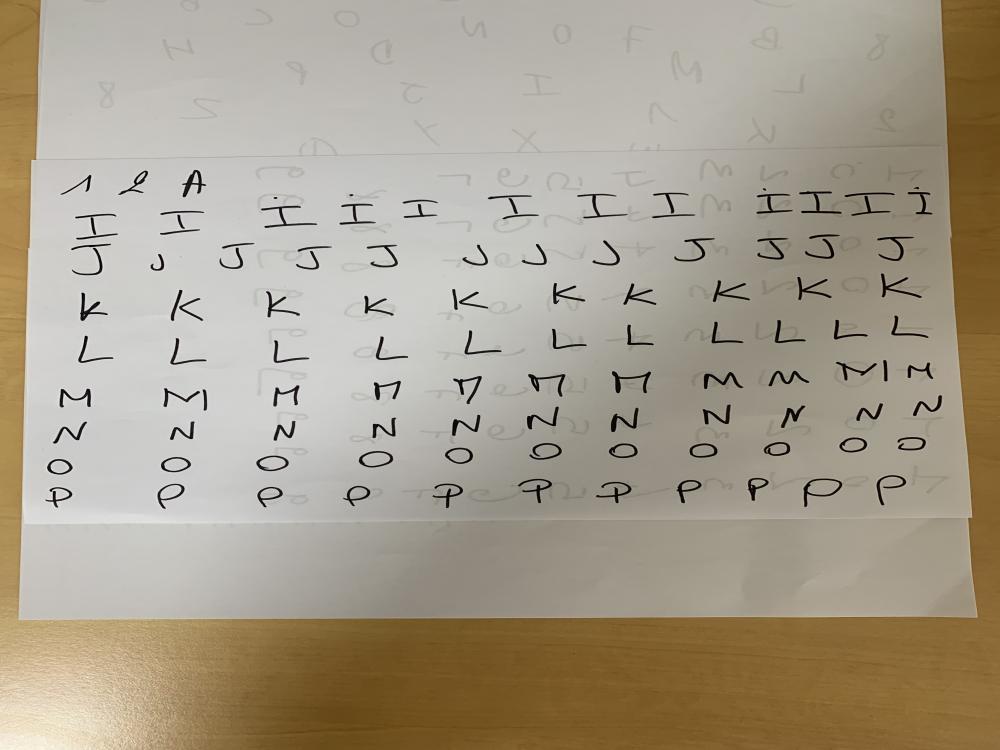 1 2 A
I I İ İ I I I I İ I I İ
J J J J J J J J J J J J
K K K K K K K K K K
L L L L L L L L L L L
M M M M M M M M M M M
N N N N N N N N N N N
O O O O O O O O O O O
P P P P P P P P P P P